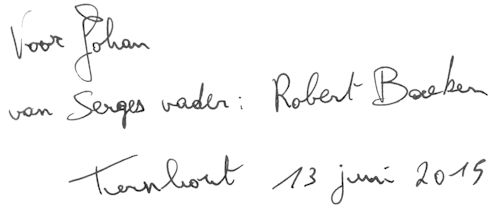 Voor Johan
van Serges vader: Robert Boeken
Turnhout 13 juni 2015